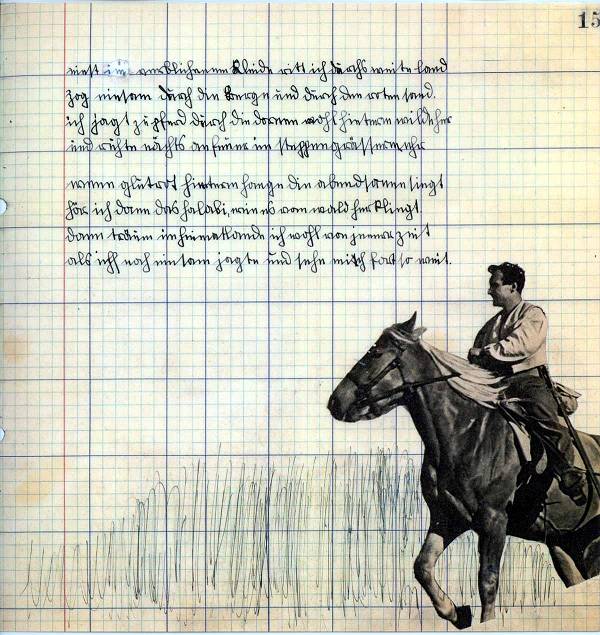 15
einst im verblichenen kleide ritt ich durchs weite land
zog einsam durch die berge und durch den roten sand.
ich jagt zu pferd durch die dornen wohl hinterm wilde her
und ruhte nachts am feuer im steppengräsermeer
wenn glutrot hinterm hange die abendsonne singt
hör ich dann das halali, wie es vom wald her klingt
dann träum im heimatlande ich wohl von jener zeit
als ich noch einsam jagte und sehn mich fort so weit.